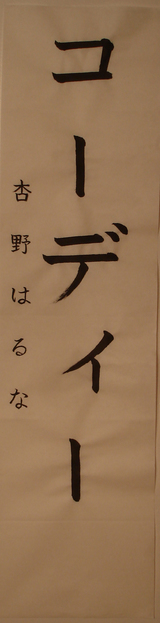 コーディー
杏野はるな